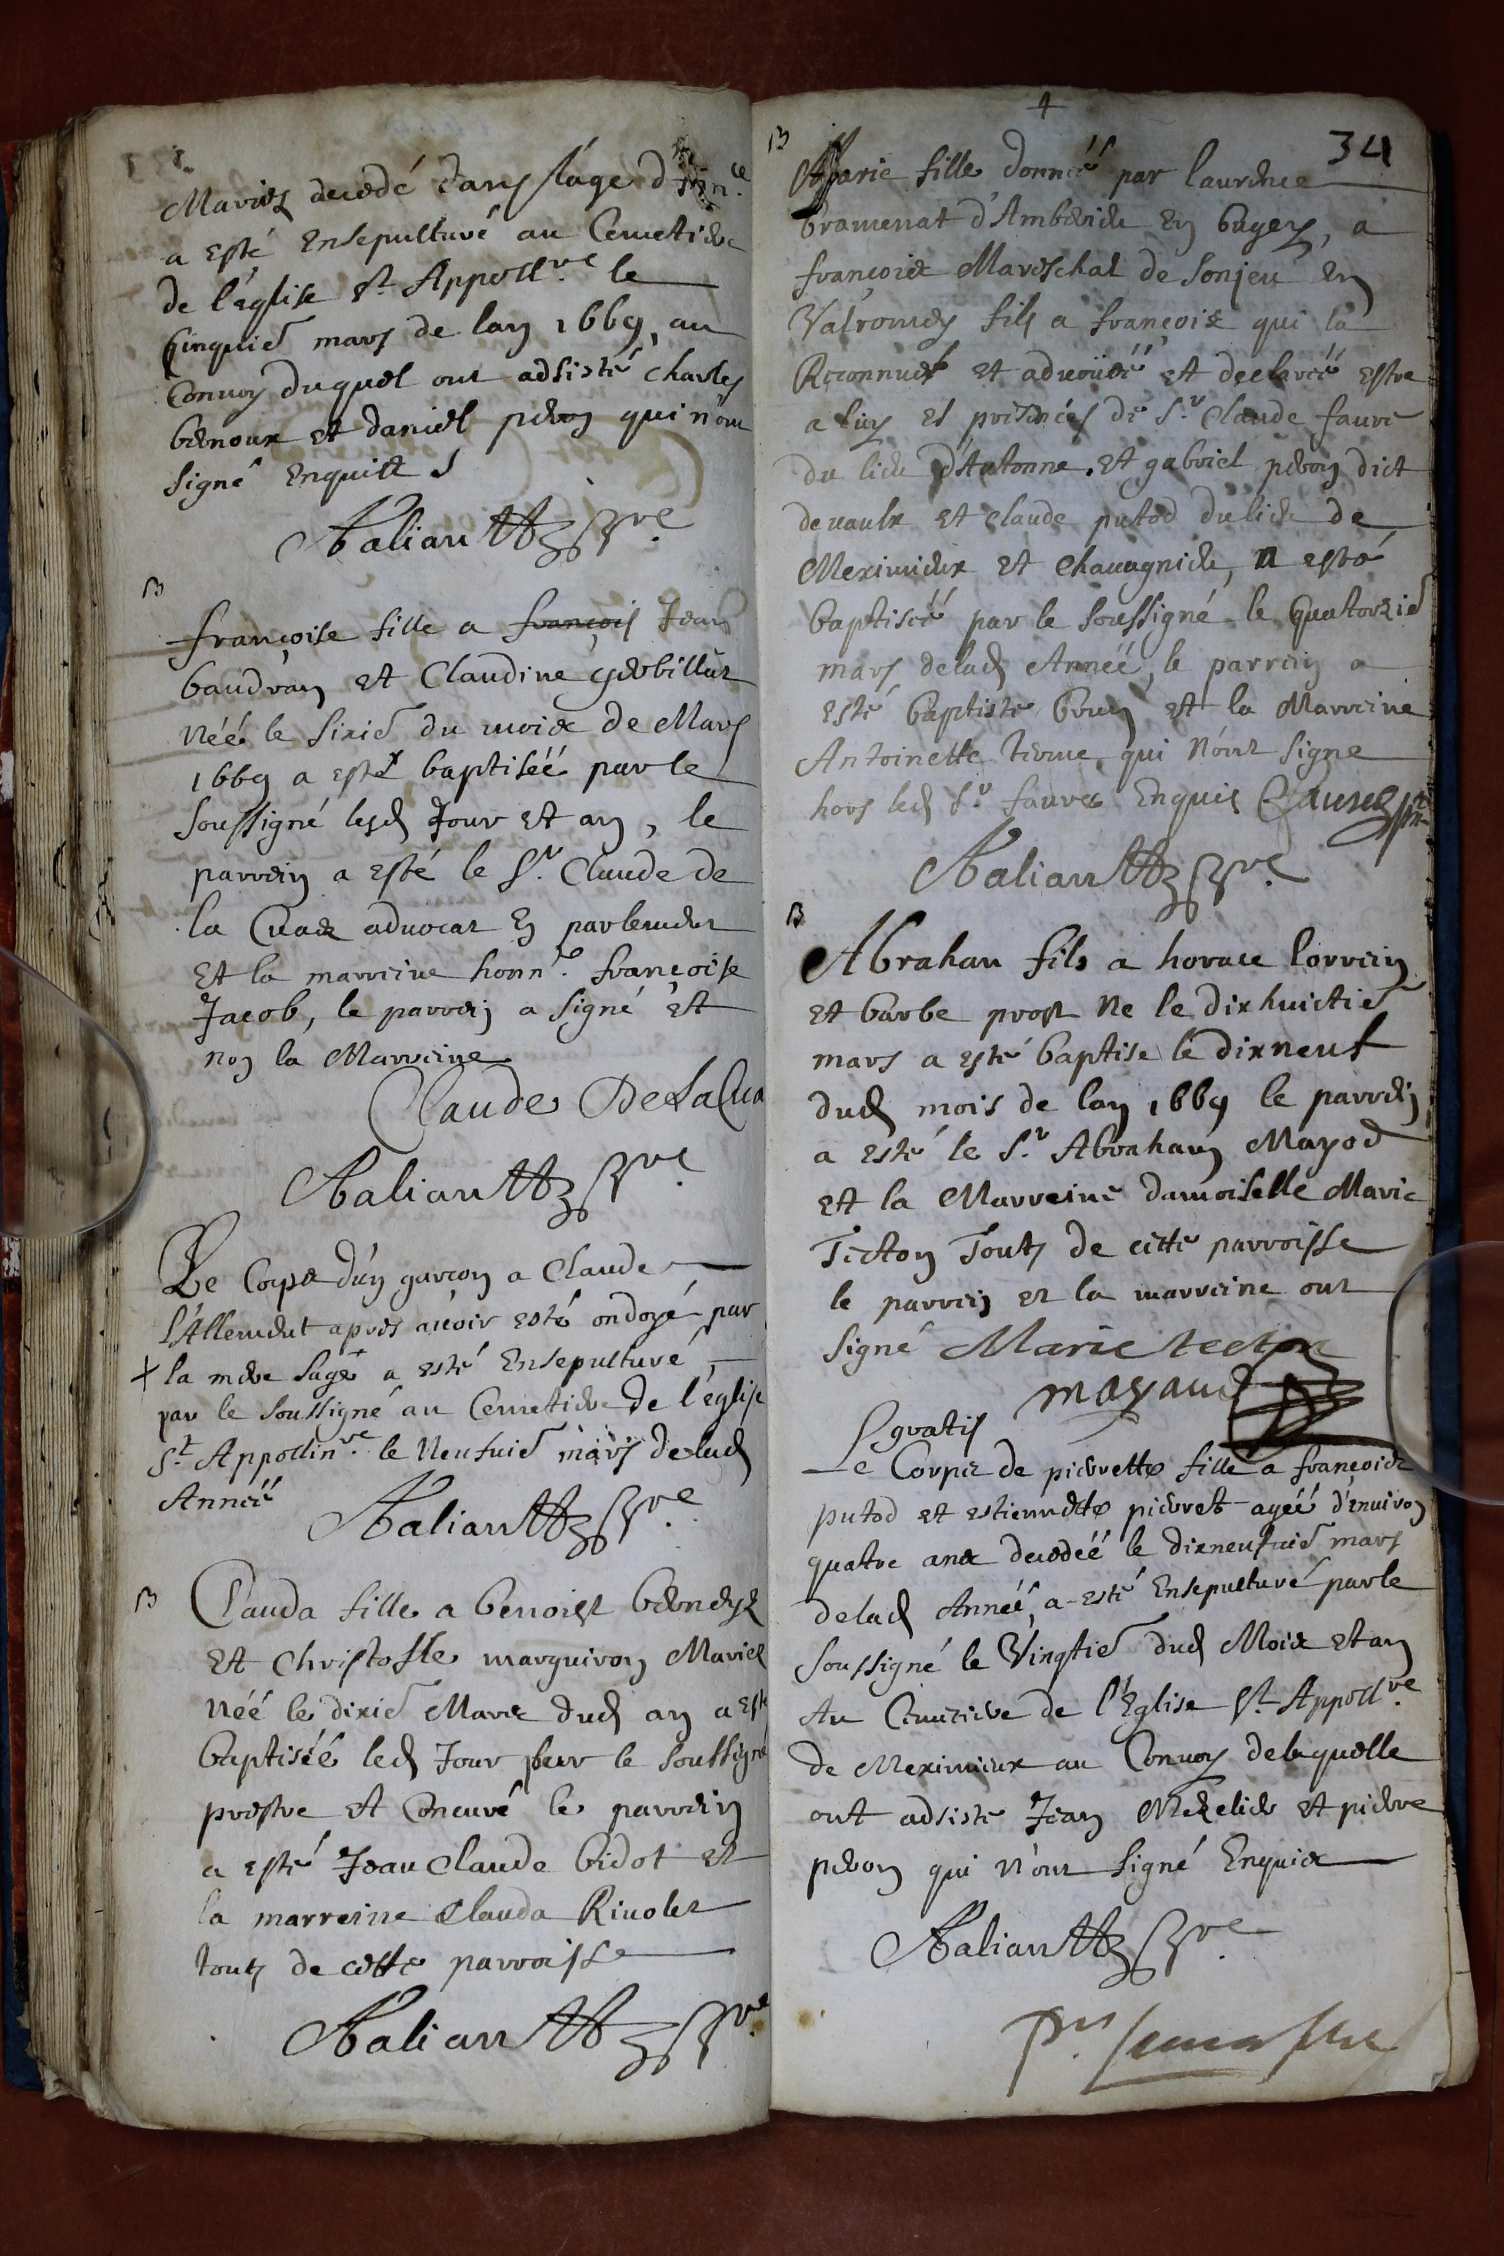 Mariez decedé dans l'age d'
a esté ensepulturé au Cemetiere
de l'église St Appoll.re le
Cinquie mars de lan 1669, au
Convoy duquel ont adsisté Charles
bernoux et daniel peron qui n'ont
signé enquist
Baliantz
B
françoise fille a françois Jean
baudran et Claudine gerbillat
néé le sixie du mois de Mars
1669 a esté baptiséé par le
soussigné lesd Jour et an, le
parrein a esté le Sr. Claude de
la Cuaz advocat En parlement
et la marreine honn.e françoise
Jacob, le parrein a signé et
non la Marreine
Claude DelaCua
Baliantz
Le Corps d'un garcon a Claude
l'Allemant apres avoir esté ondoyé par
+ la mere sage a esté Ensepulturé,
par le soussigné au Cemetiere de l'église
St Appollin.re le Neufuie mars delad
Annéé
Baliantz
B
Clauda fille a benoist
et Christofle marguiron Mariez
néé le dixie Mars dud an a esté
baptiséé led Jour par le soussigné
prestre et Concuré le parrein
a esté Jean Claude bidot et
la marreine Clauda Riuolet
touts de cette parroisse
Baliantz
34
B
Marie fille donnéé par laurence
bramenat d'Amberieu en bugey, a
françois Mareschal de Sonjeu en
Valromey fils a françois qui la
Reconnue et aduouéé et declaréé estre
a luy es presences de Sr. Claude faure
du lieu et gabriel peron dict
devaulx et Claude putod du lieu de
Meximieux et Chauagnieu, a esté
baptiséé par le soussigné le quatorzie
mars delad Annéé, le parrein a
esté baptiste brun et la Marreine
Antoinette qui n'ont signe
hors led Sr. faure Enquis
Baliantz
B
Abraham fils a horace lorrein
et barbe prost Ne le dixhuictie
mars a esté baptise le dixneuf
dud mois de lan 1669 le parrein
a esté le Sr. Abraham Mayod
et la Marreine damoiselle Marie
Tecton Touts de cette parroisse
le parrein et la marreine ont
signé Marie tecton
mayaud
gratis
Le Corps de pierrette fille a françois
putod et estiennette pierret agéé d'enuiron
quatre ans decedéé le dixneufuie mars
delad Annéé, a esté Ensepulturé par le
soussigné le Vingtie dud Mois et an
Au Cemetiere de l'Eglise St. Appoll.re
de Meximieux au Convoy delaquelle
ont adsisté Jean et pierre
peron qui n'ont signé Enquis
Baliantz